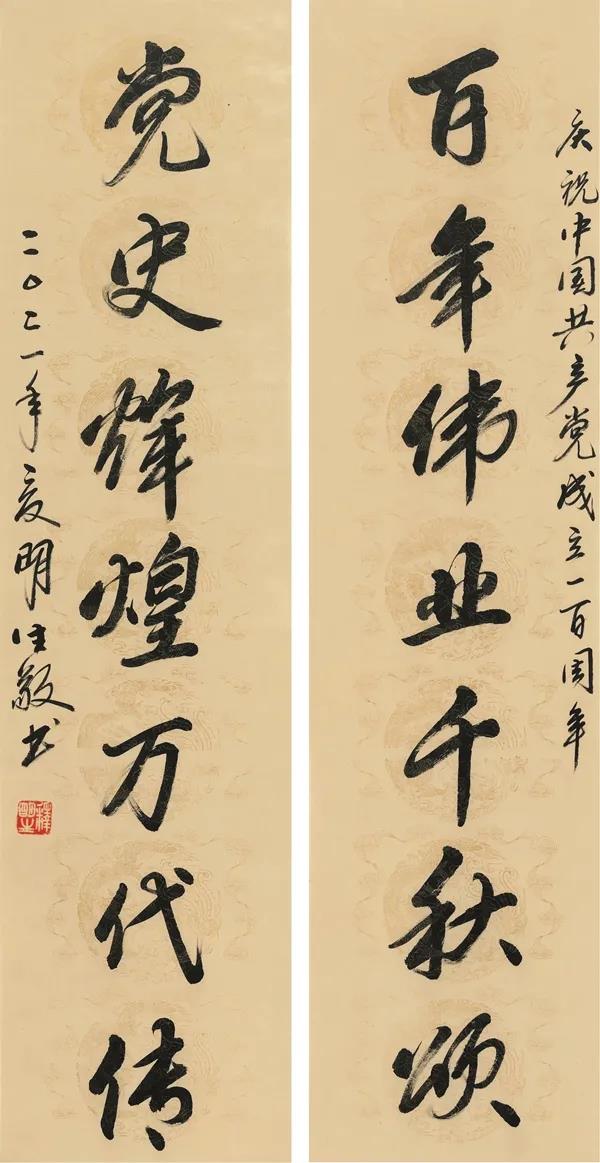 庆祝中国共产党成立一百周年
百年伟业千秋颂
党史煇煌万代传
二〇二一年夏明生敬书